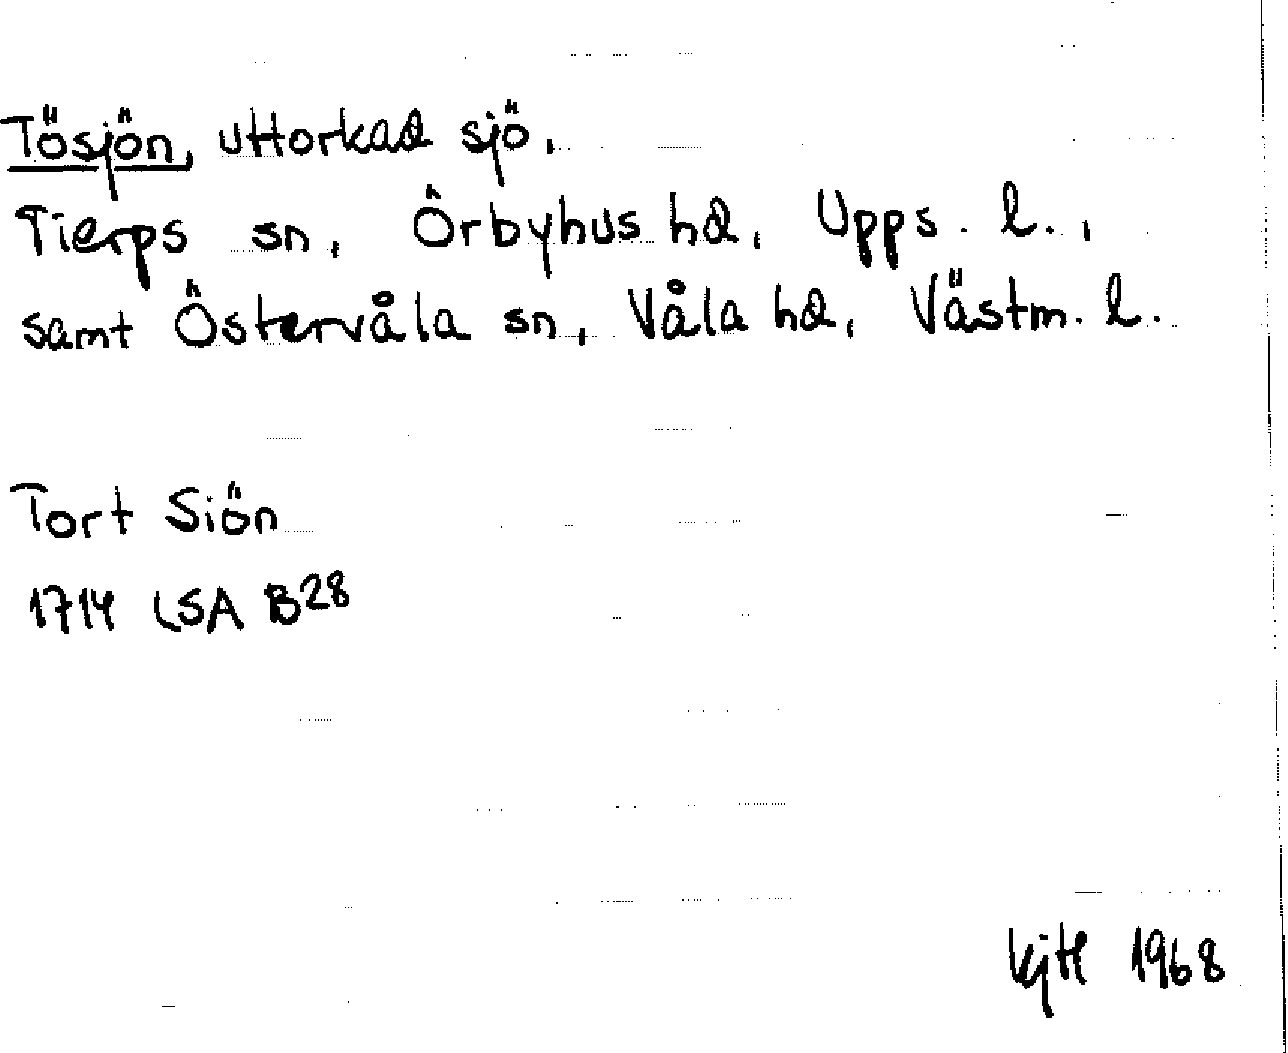 Tösjön, uttorkad sjö,
Tierps sn, Örbyhus hd, Upps. l.,
samt Östervåla sn, Våla hd, Västm. l.
Tort Siön
1714 LSA B28
1968